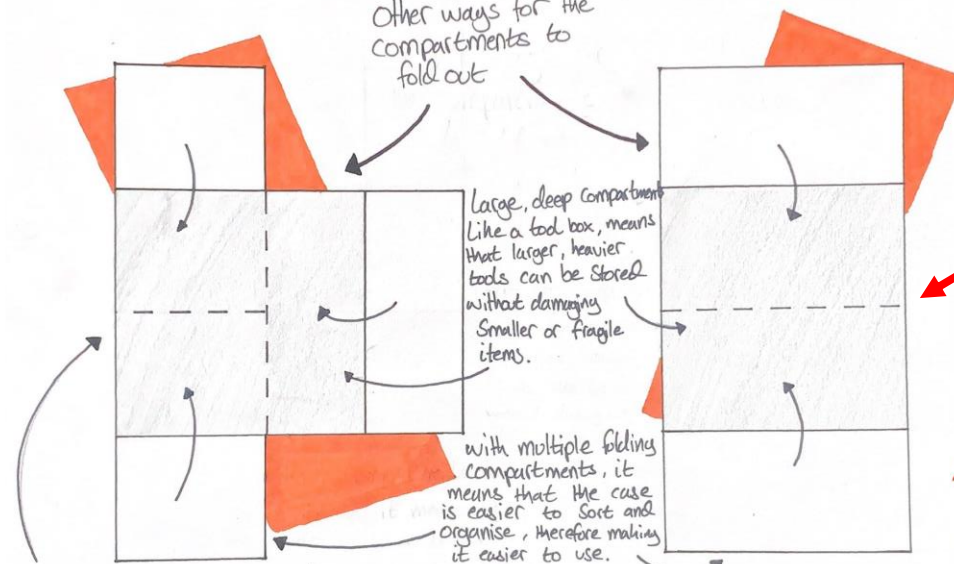 Other ways for the
compartments to
fold out
Large, deep compartment
Like a tool box, means
that larger, heavier
tools can be stored
without damaging
Smaller or fragile
items.
with multiple folding
compartments, it
means that the case
is easier to sort and
organise, therefore making
it easier to use.